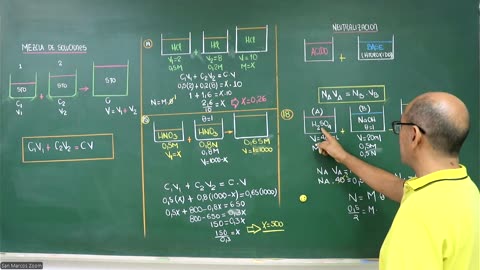 MEZCLA DE SOLUCIONES
1
2
STO
+
STO
STO
C₁
V₁
C₂
V₂
C
V=V₁+V₂
C₁V₁ + C₂V₂ = CV
HCl
+
HCl
HCl
V₁=2
0,5M
V₂=8
0,2M
V=10
M=X
C₁V₁+C₂V₂=C.V
0,5(2)+0,2(8)=X.10
1+1,6=X.10
2,6/10=X
X=0,26
N=M.θ
HNO₃
+
HNO₃
θ=1
0,5M
V=X
0,8N
V=1000-X
0,65M
C₁V₁ + C₂V₂ = C.V
0,5(X)+(0,8)(1000-X)=0,65(1000)
0,5X+800-0,8X=650
800-650=0,3X
150=0,3X
150/0,3=X
X=500
NEUTRALIZACION
ACIDO
+
BASE
(HIDROXIDO)
NAVA = NB.VB
18
(A)
H₂SO₄
+
(B)
NaOH
θ=1
V=20ml
0,5M
0,5N
NA.VA=
NA.40=
N=M.
0,5/2=M
San Marcos Zoom